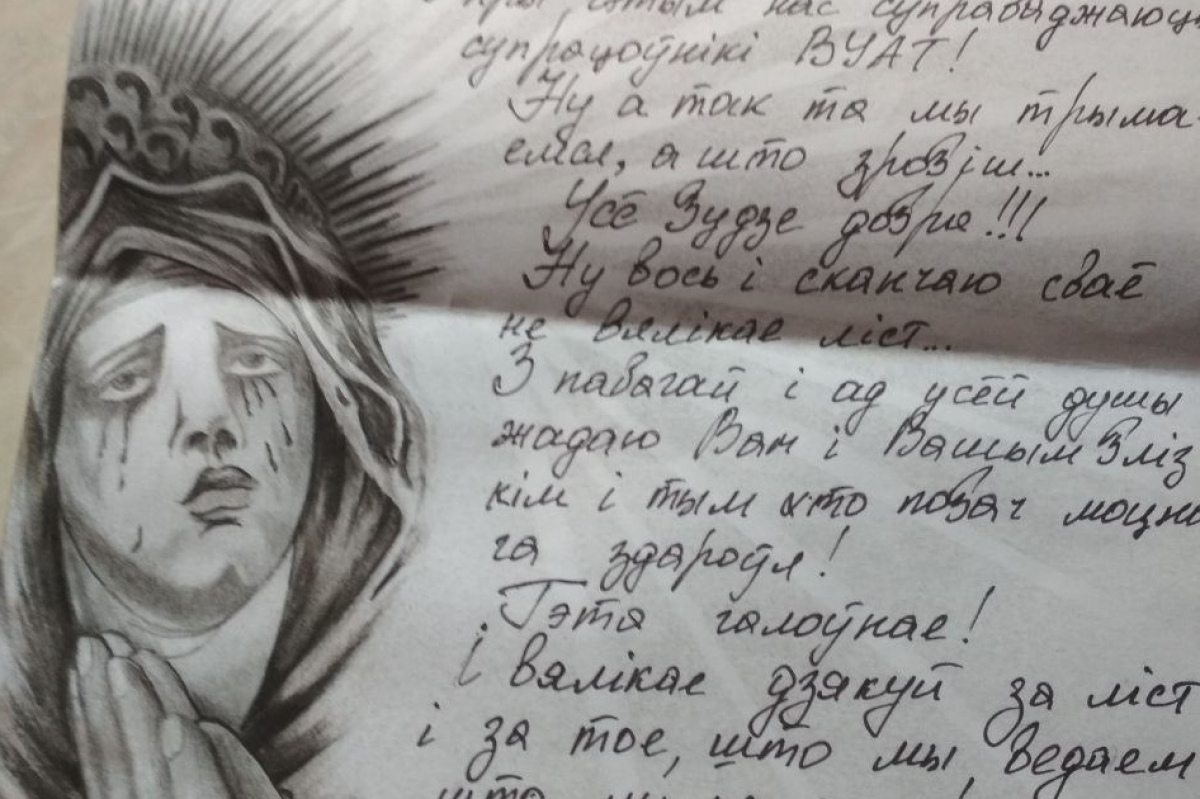 пры гэтым нас суправаджаюць
супрацоўнікі ВУАТ!
Ну а так то мы трыма-
емся, а што зробіш...
Усё будзе добра!!!
Ну вось і сканчаю сваё
не вялікае ліст...
З павагай і ад усёй душы
жадаю Вам і Вашым бліз
кім і тым хто побач моцна
га здароўя!
Гэта галоўнае!
І вялікае дзякуй за ліст
і за тое, што мы ведаем
што